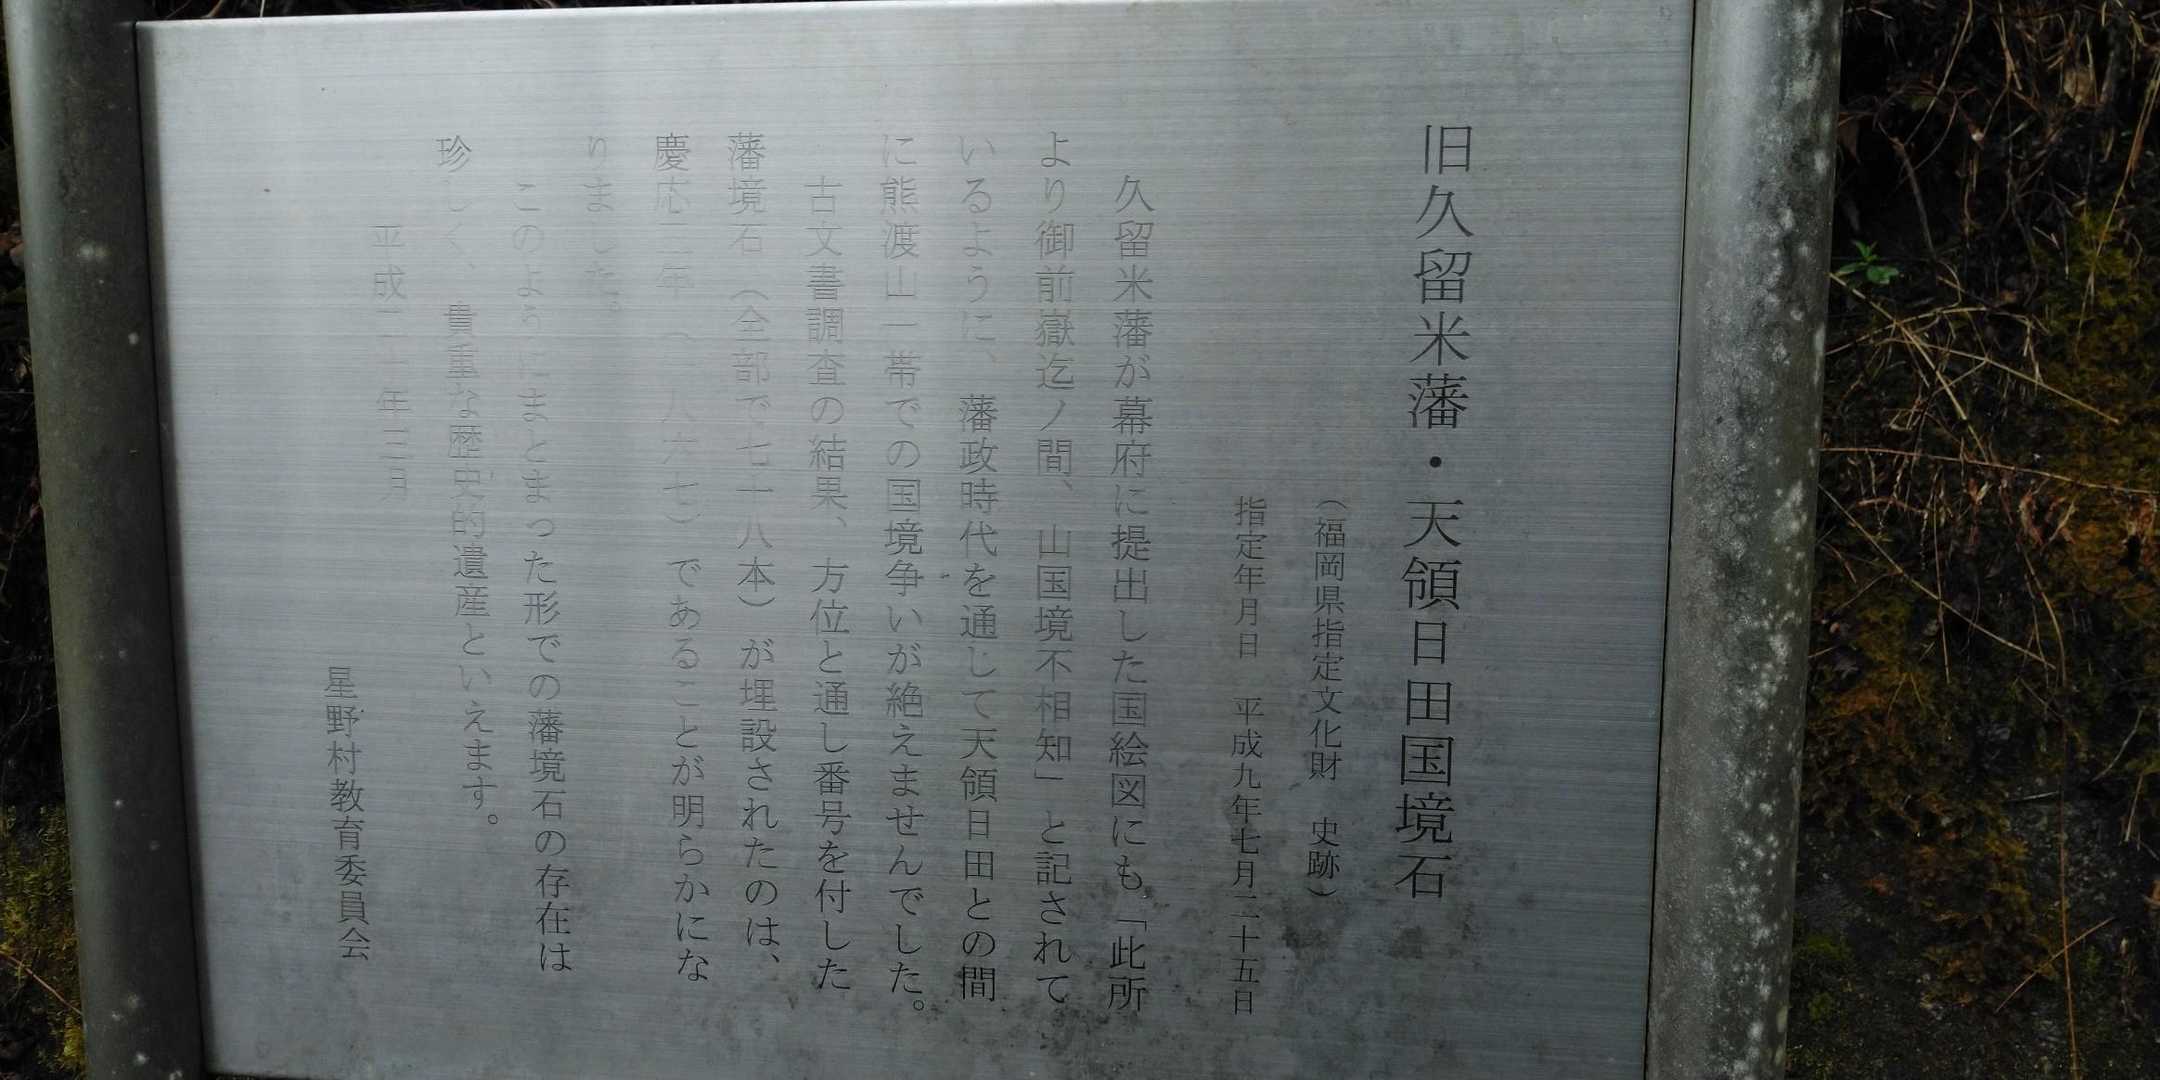 旧久留米藩・天領日田国境石
（福岡県指定文化財　史跡）
指定年月日　平成九年七月二十五日
久留米藩が幕府に提出した国絵図にも「此所
より御前嶽迄ノ間、山国境不相知」と記されて
いるように、藩政時代を通じて天領日田との間
に熊渡山一帯での国境争いが絶えませんでした。
古文書調査の結果、方位と通し番号を付した
藩境石（全部で七十八本）が埋設されたのは、
慶応二年（一八六七）であることが明らかにな
りました。
このようにまとまった形での藩境石の存在は
珍しく、貴重な歴史的遺産といえます。
平成二十年三月
星野村教育委員会